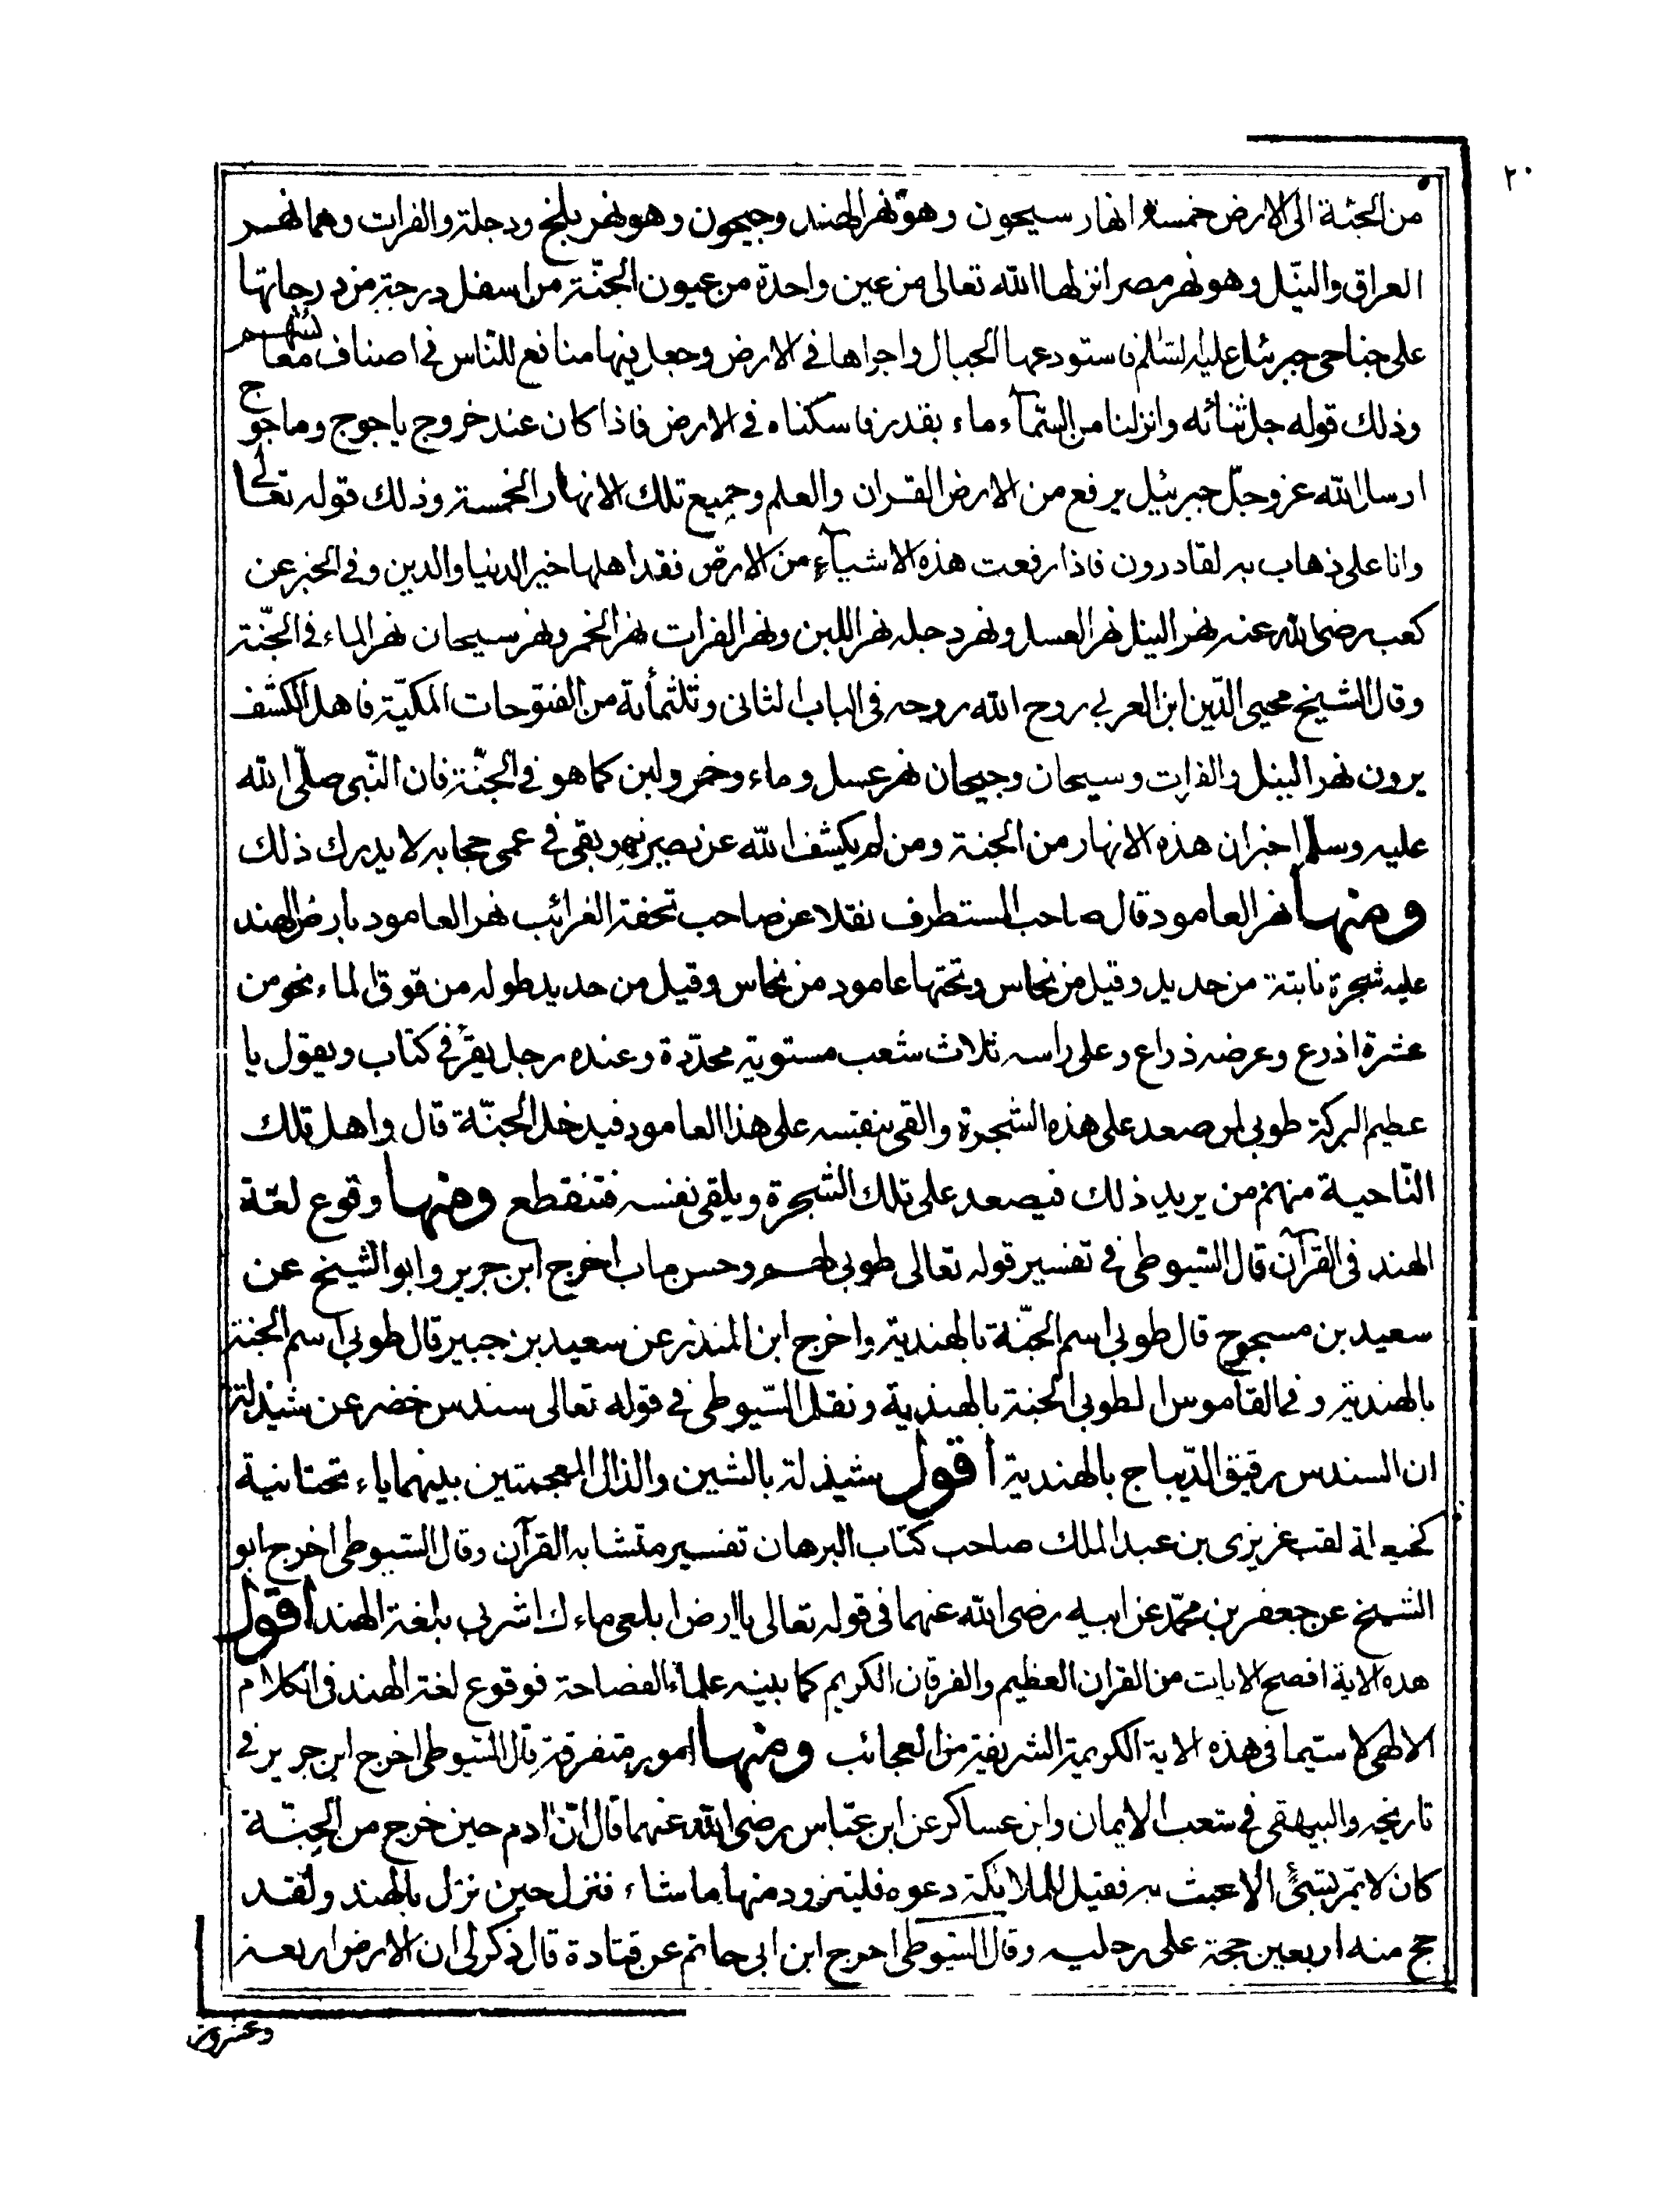 ٢٠
من الجنّة الى الارض خمسة انهار سيحون وهو نهر الهند وجيحون وهو نهر بلخ ودجلة والفرات وهما نهر
العراق والنّيل وهو نهر مصر انزلها اللّه تعالى من عين واحدة من عيون الجنّة من اسفل درجة من درجاتها
على جناحى جبرئيل عليه السّلام فاستودعها الجبال واجراها فى الارض وجعل فيها منافع للنّاس فى اصناف معائشهم
وذلك قوله جل ثنائه وانزلنا من السّمآء ماء بقدر فاسكناه فى الارض فاذا كان عند خروج ياجوج وماجوج
ارسل اللّه عز وجلّ جبرئيل يرفع من الارض القران والعلم وجميع تلك الانهار الخمسة وذلك قوله تعالى
وانا على ذهاب به لقادرون فاذا رفعت هذه الاشيآء من الارض فقد اهلها خير الدنيا والدين وفى الخبر عن
كعب رضى اللّه عنه نهر النيل نهر العسل ونهر دجله نهر اللبن ونهر الفرات نهر الخمر ونهر سيحان نهر الماء فى الجنّة
وقال الشيخ محيى الدّين ابن العربي روح اللّه روحه فى الباب الثانى وثلثمأة من الفتوحات المكيّة فاهل الكشف
يرون نهر النيل والفرات وسيحان وجيحان نهر عسل وماء وخمر ولبن كما هو فى الجنّة فان النّبى صلّى اللّه
عليه وسلم اخبران هذه الانهار من الجنة ومن لم يكشف اللّه عن بصره وبقى فى عمى حجابه لا يدرك ذلك
ومنها نهر العامود قال صاحب المستطرف نقلا عن صاحب تحفة الغرائب نهر العامود بارض الهند
عليه شجرة نابتة من حديد وقيل من نحاس وتحتها عامود من نحاس وقيل من حديد طوله من فوق الماء نحو من
عشرة اذرع وعرضه ذراع وعلى راسه ثلاث شعب مستوية محدّدة وعنده رجل يقرأ فى كتاب ويقول يا
عظيم البركة طوبى لمن صعد على هذه الشجرة والقى بنفسه على هذا العامود فيدخل الجنّة قال واهل تلك
النّاحية منهم من يريد ذلك فيصعد على تلك الشجرة ويلقى نفسه فتنقطع ومنها وقوع لغة
الهند فى القرآن قال السّيوطى فى تفسير قوله تعالى طوبى لهم وحسن ماب اخرج ابن جرير وابو الشيخ عن
سعيد بن مسجوح قال طوبى اسم الجنّة بالهندية واخرج ابن المنذر عن سعيد بن جبير قال طوبى اسم الجنة
بالهندية وفى القاموس الطوبى الجنة بالهندية ونقل السّيوطى فى قوله تعالى سندس خضر عن شيذلة
ان السندس رقيق الدّيباج بالهندية اقول شيذلة بالشين والذال المعجمتين بينهما ياء تحتانية
لقب عزيزى بن عبد الملك صاحب كتاب البرهان تفسير متشابه القرآن وقال السّيوطى اخرج ابو
الشيخ عن جعفر بن محمّد عن ابيه رضى اللّه عنهما فى قوله تعالى يا ارض ابلعى ماءك اشربى بلغة الهند اقول
هذه الاية افصح الايات من القران العظيم والفرقان الكريم كما بينه علماء الفصاحة فوقوع لغة الهند فى الكلام
الالهى لا سيّما فى هذه الاية الكريمة الشريفة من العجائب ومنها امور متفرقة قال السّيوطى اخرج ابن جرير فى
تاريخه والبيهقى فى شعب الايمان وابن عساكر عن ابن عبّاس رضى اللّه عنهما قال انّ ادم حين خرج من الجنّة
كان لا يمرّ بشئ الا عبث به فقيل للملائكة دعوه فليتزود منها ما شاء فنزل حين نزل بالهند ولقد
حج منه اربعين حجة على رجليه وقال السّيوطى اخرج ابن ابى حاتم عن قتادة قال ذكر لى ان الارض اربعة
وعشرون